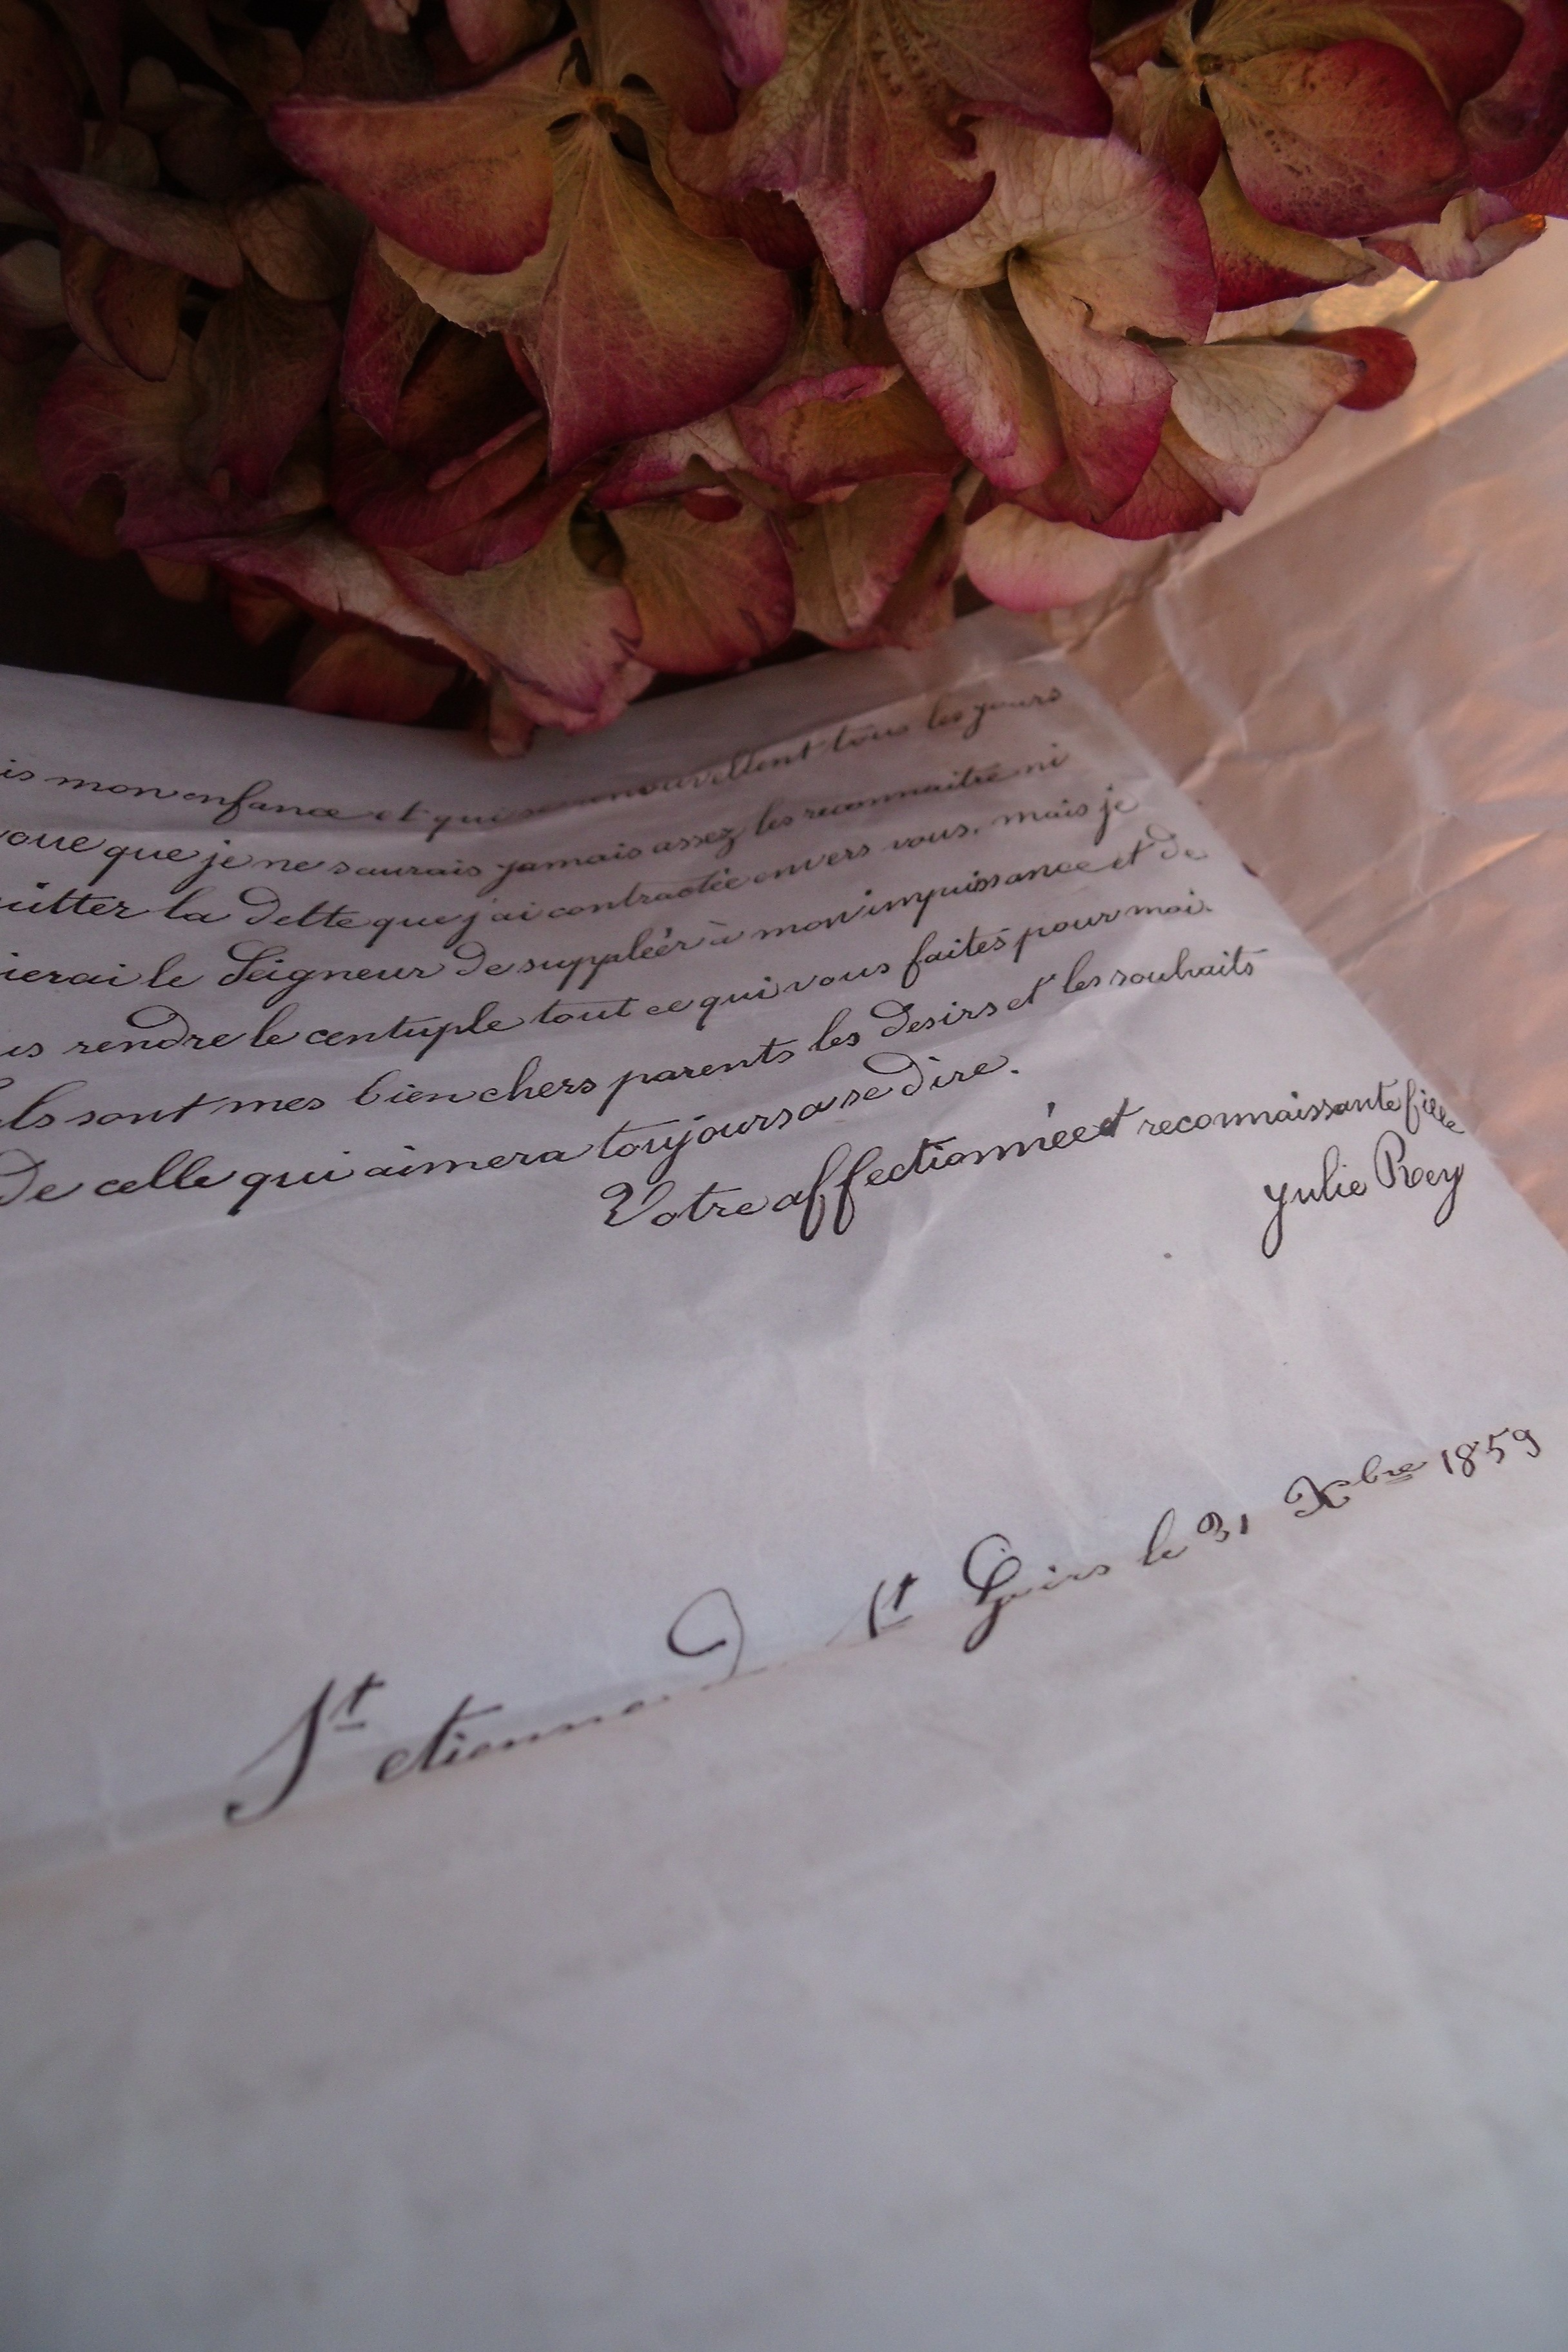 is mon enfance et qui se renouvellent tous les jours
voue que je ne saurais jamais assez les reconnaitre ni
uitter la dette que j'ai contractée envers vous, mais je
ierai le Seigneur de suppléer à mon impuissance et de
us rendre le centuple tout ce qui vous faites pour moi.
els sont mes bien chers parents les desirs et les souhaits
De celle qui aimera toujours a se dire.
Votre affectionnée et reconnaissante fille
Julie Rey
St etienne D St Geoirs le 31 Xbre 1859